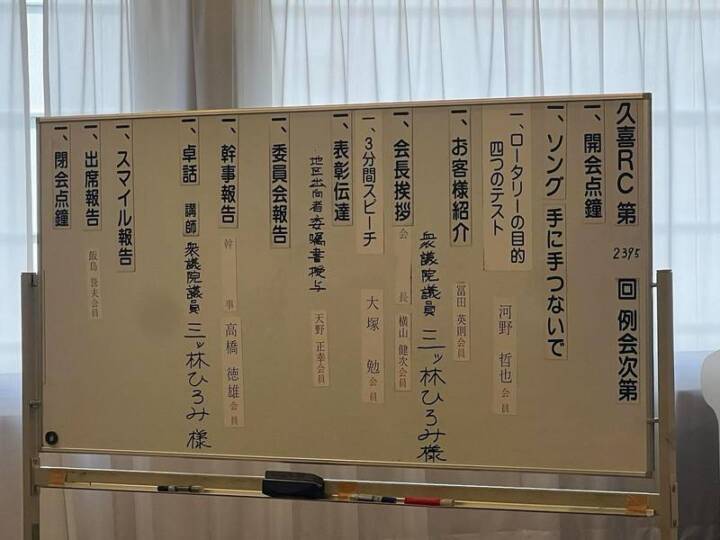 久喜RC 第 2395 回 例会次第
一、開会点鐘
一、ソング 手に手つないで
一、ロータリーの目的
四つのテスト
河野 哲也 会員
一、お客様紹介
冨田 英則会員
衆議院議員 三ッ林ひろみ様
一、会長挨拶
会長 横山 健次会員
一、3分間スピーチ
大塚 勉 会員
一、表彰伝達
地区出向者委嘱書授与
天野 正幸会員
一、委員会報告
一、幹事報告
幹事 高橋 徳雄 会員
一、卓話 講師 衆議院議員 三ッ林ひろみ様
一、スマイル報告
一、出席報告
飯島 登夫会員
一、閉会点鐘